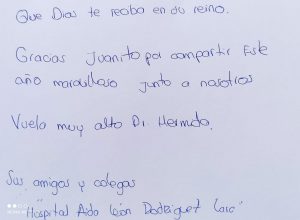 Que Dios te reciba en su reino.
Gracias Juanito por compartir Este
año maravilloso junto a nosotros
Vuela muy alto Dr. Hermida.
Sus amigos y colegas
"Hospital Aida León Rodriguez Lara"